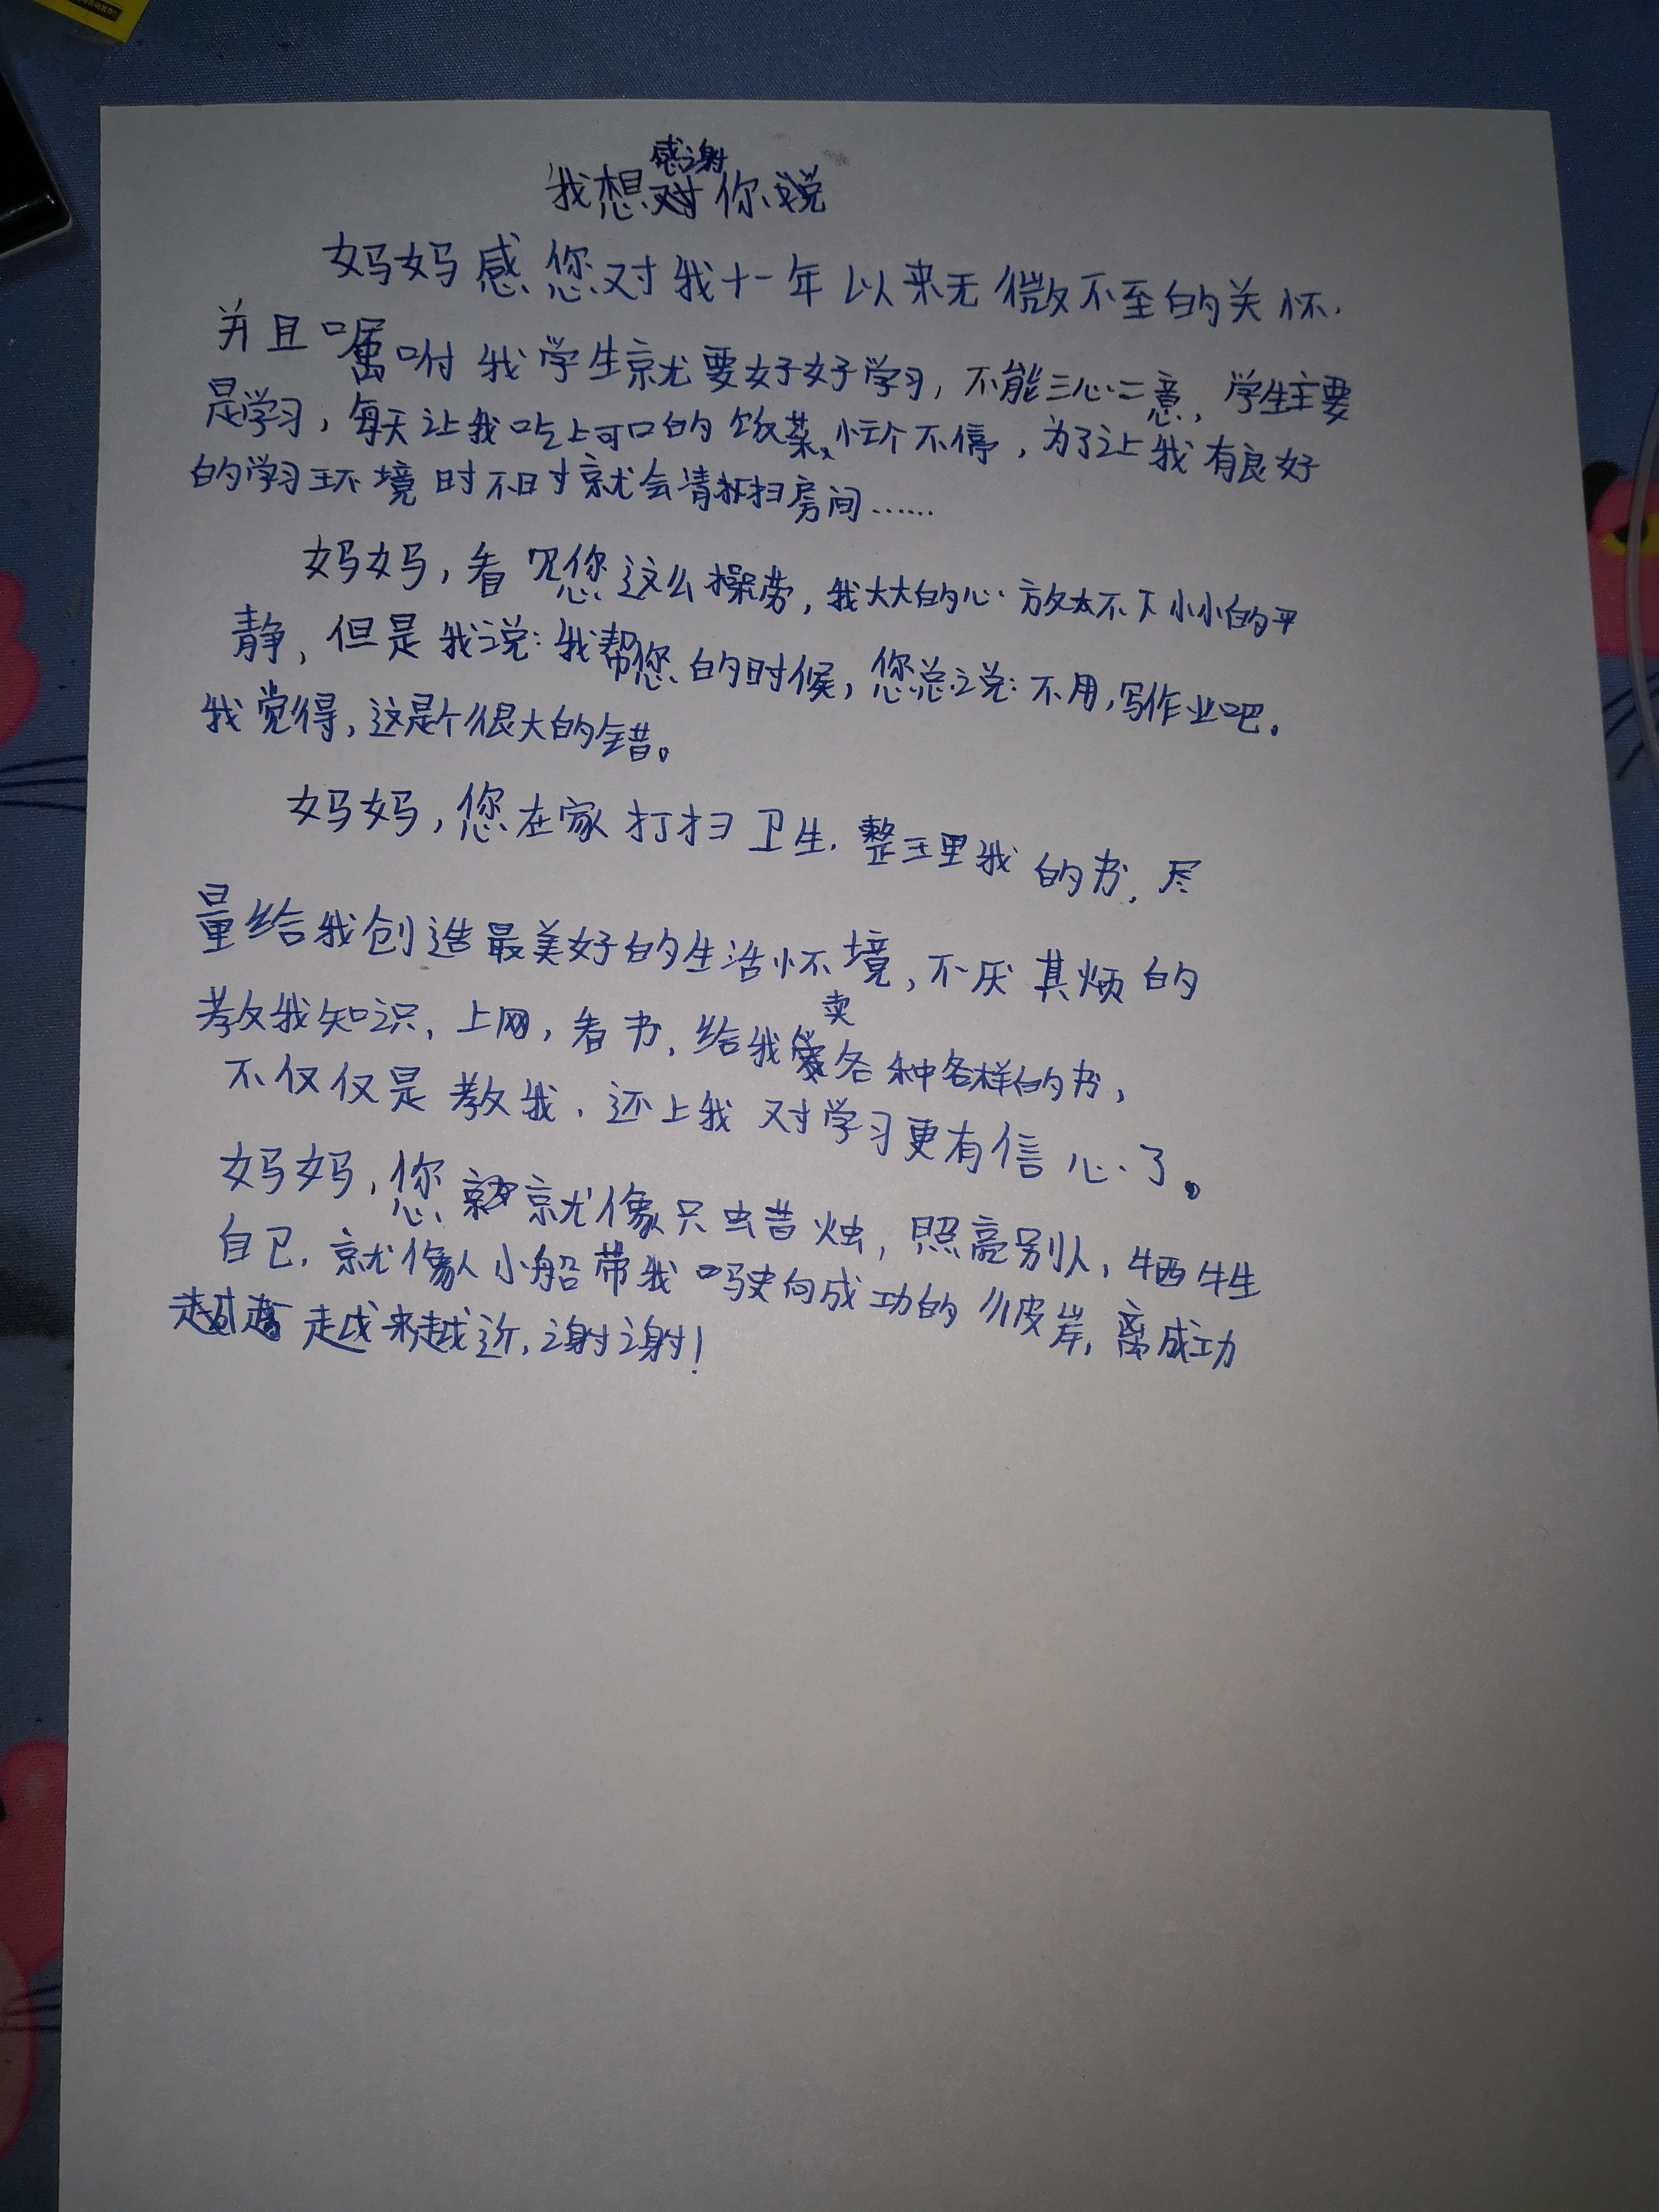 我想感谢你
妈妈感您对我十一年以来无微不至的关怀.
并且嘱咐我学生就要好好学习，不能三心二意，学生主要
是学习，每天让我吃上可口的饭菜、忙个不停，为了让我有良好
的学习环境时不时就会清扫房间……
妈妈，看见您这么操劳，我大大的心放不下小小的平
静，但是我说：我帮您的时候，您总说：不用，写作业吧.
我觉得，这是个很大的错。
妈妈，您在家打扫卫生.整理我的书，尽
量给我创造最美好的生活怀境，不厌其烦的
教我知识，上网，看书，给我卖各种各样的书，
不仅仅是教我.还上我对学习更有信心了。
妈妈，您就像只蜡烛，照亮别人，牺牲
自己.就像人小船带我驶向成功的彼岸，离成功
越来越近，谢谢！